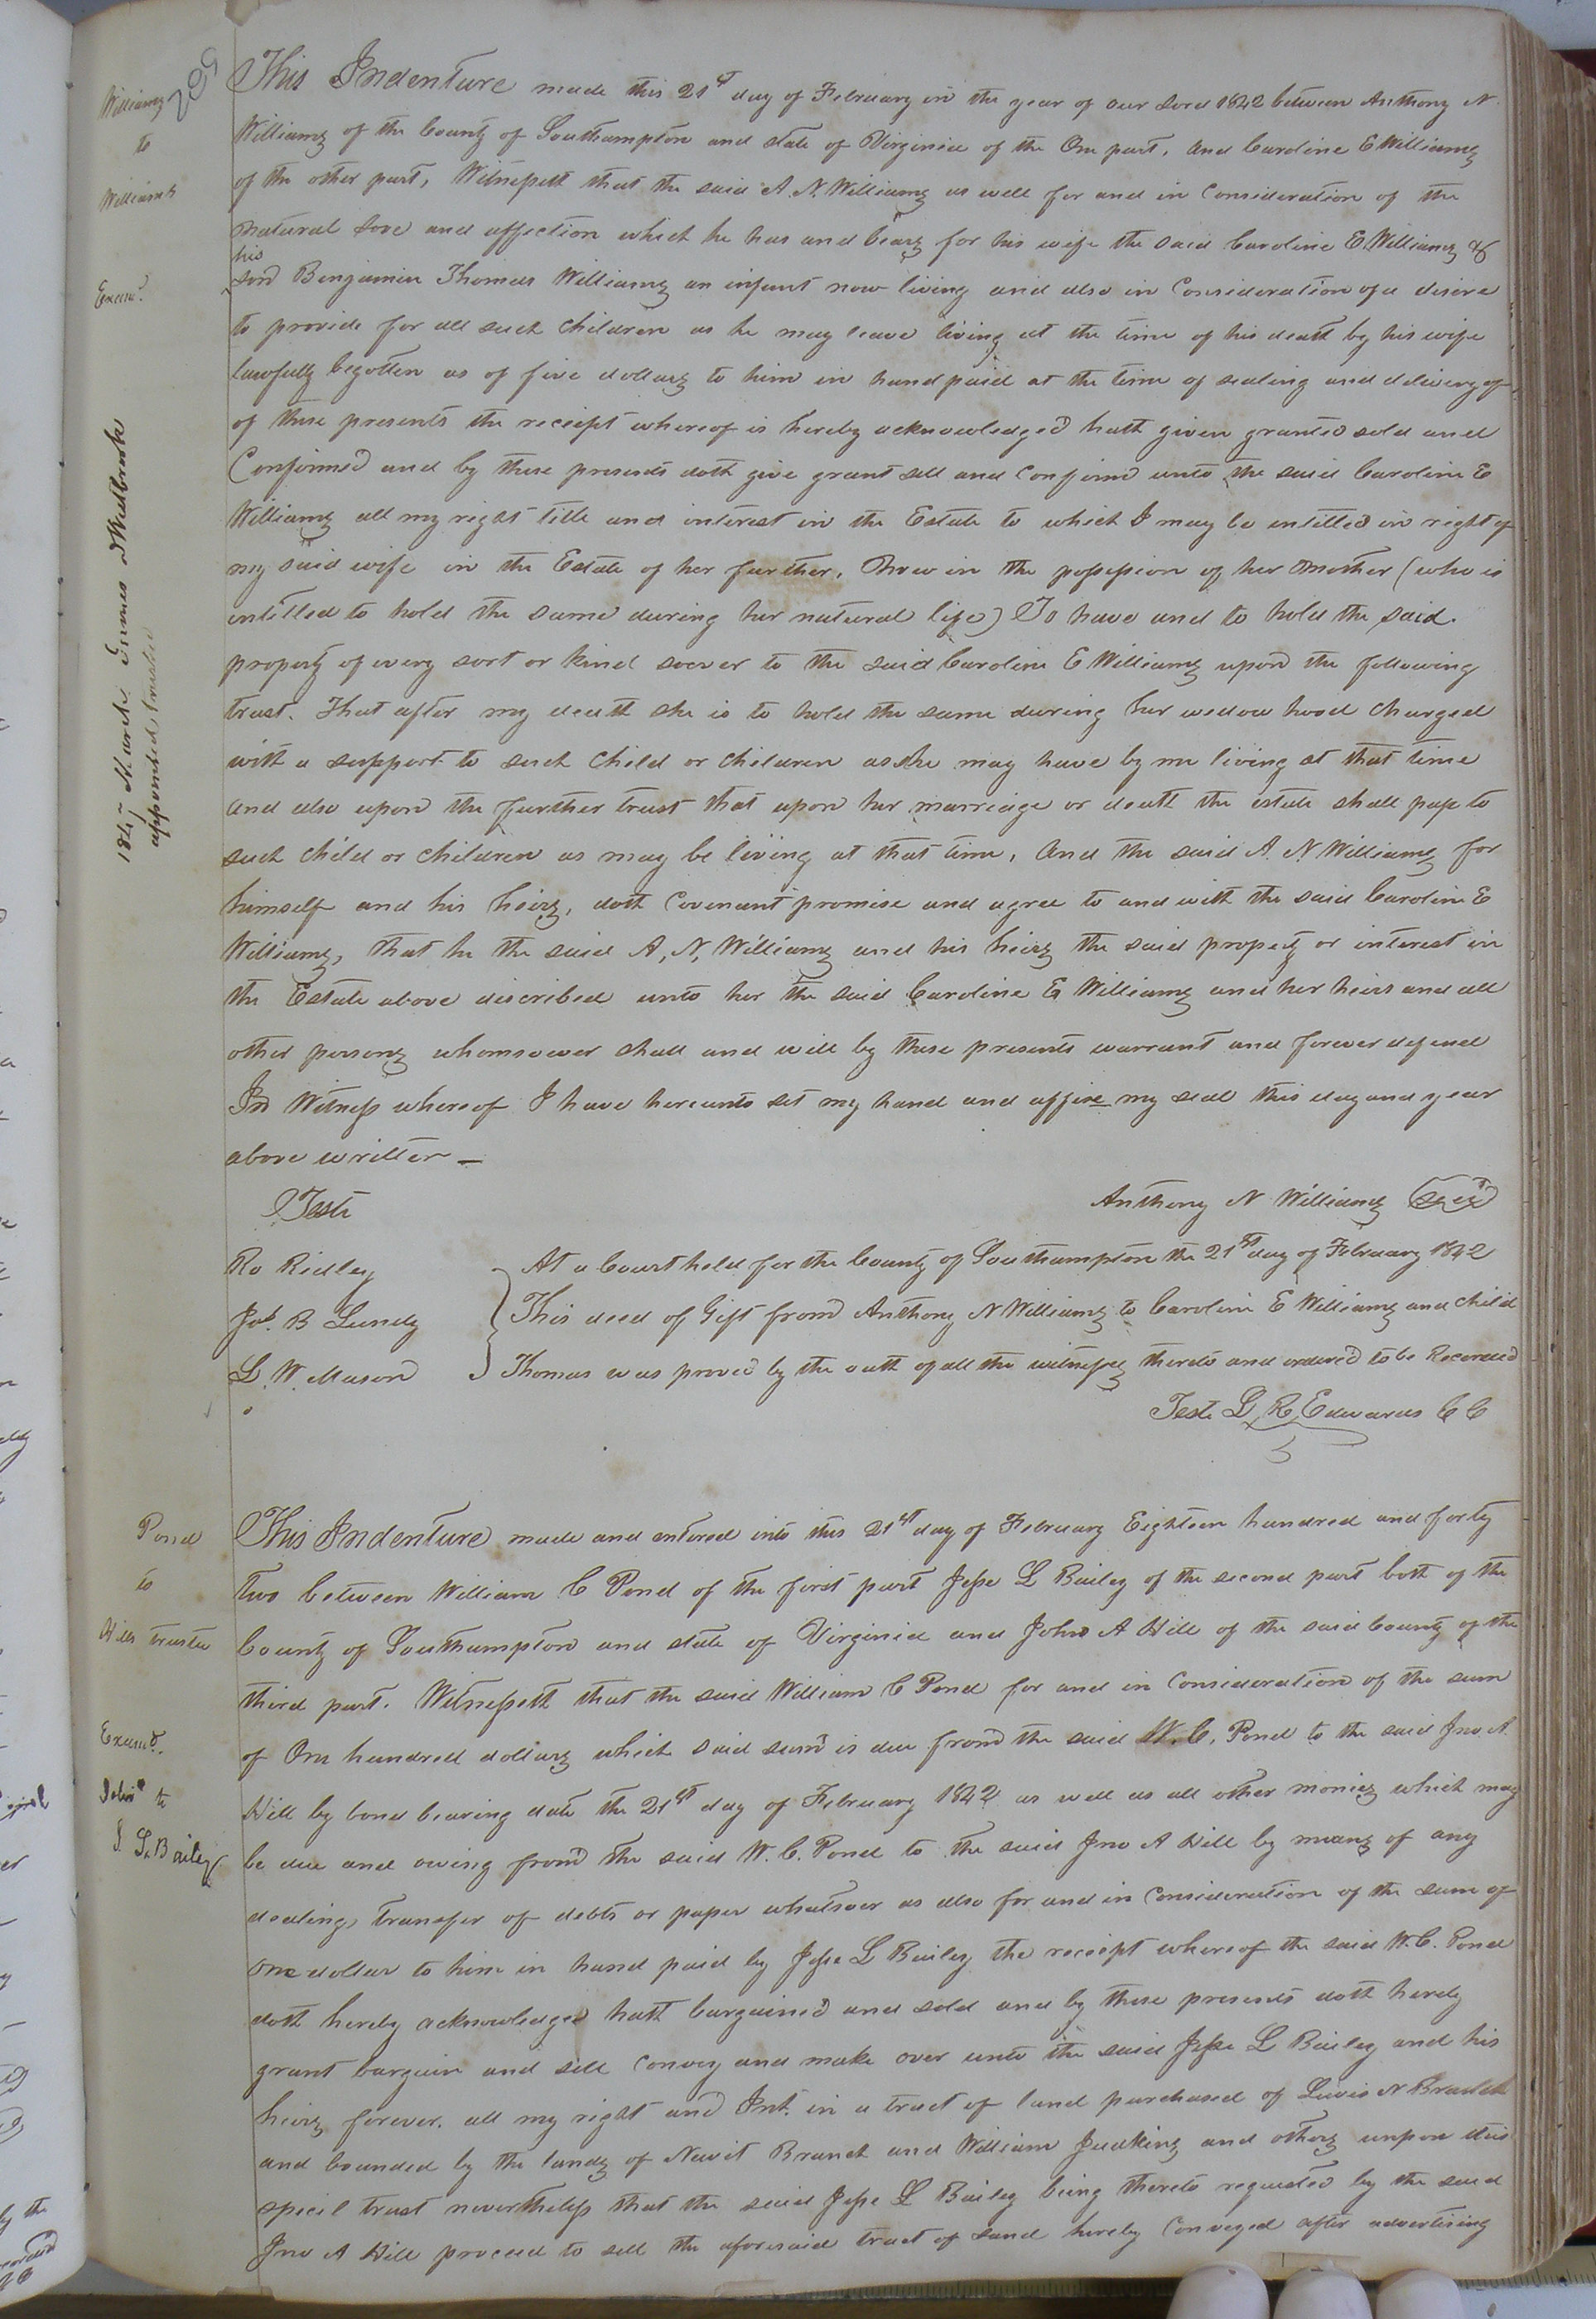 209
Williams
to
Williams
Examd.
This Indenture made this 21st day of February in the year of our Lord 1842 between Anthony N
Williams of the County of Southampton and state of Virginia of the One part, and Caroline E Williams
of the other part, Witnesseth that the said A. N. Williams as well for and in Consideration of the
natural love and affection which he has and bears for his wife the said Caroline E Williams &
his
son Benjamin Thomas Williams an infant now living and also in Consideration of a desire
to provide for all such children as he may leave living at the time of his death by his wife
lawfully begotten as of five dollars to him in hand paid at the time of sealing and delivery of
of these presents the receipt whereof is hereby acknowledged hath given granted sold and
Confirmed and by these presents doth give grant sell and confirm unto the said Caroline E
Williams all my right title and interest in the Estate to which I may be intitled in right of
my said wife in the Estate of her further, Now in the possession of her Mother (who is
intitled to hold the same during her natural life) To have and to hold the said
property of every sort or kind soever to the said Caroline E Williams upon the following
trust. That after my death she is to hold the same during her widow hood charged
with a support to such child or children as she may have by me living at that time
and also upon the further trust that upon her marriage or death the estate shall pass to
such child or children as may be living at that time, And the said A. N Williams for
himself and his heirs, doth Covenant promise and agree to and with the said Caroline E
Williams, that he the said A, N, Williams and his heirs the said property or interest in
the Estate above discribed unto her the said Caroline E Williams and her heirs and all
other persons whomsoever shall and will by these presents warrant and forever defend
In Witness whereof I have hereunto set my hand and affixe my seal this day and year
above written –
1847 March
appointed trustee
Teste
Anthony N Williams Seal
Ro Ridley
Jos. B Lundy
L. W. Mason
At a Court held for the County of Southampton the 21st day of February 1842
This deed of Gift from Anthony N Williams to Caroline E Williams and child
Thomas was proved by the oath of all the witnesses thereto and ordered to be Recorded
Teste L R Edwards C C
Pond
to
Hills trustee
Examd.
J. L. Bailey
This Indenture made and entered into this 21st day of February Eighteen hundred and forty
two between William C Pond of the first part Jesse L Bailey of the second part both of the
County of Southampton and state of Virginia and John A Hill of the said County of the
third part. Witnesseth that the said William C Pond for and in Consideration of the sum
of One hundred dollars which said sum is due from the said W. C. Pond to the said Jno A
Hill by bond bearing date the 21st day of February 1842 as well as all other monies which may
be due and owing from the said W. C. Pond to the said Jno A Hill by means of any
dealing, transfer of debts or paper whatsoever as also for and in Consideration of the sum of
one dollar to him in hand paid by Jesse L Bailey the receipt whereof the said W. C. Pond
doth hereby acknowledge hath bargained and sold and by these presents doth hereby
grant bargain and sell convey and make over unto the said Jesse L Bailey and his
heirs forever. all my right and Int. in a tract of land purchased of Lewis N Branch
and bounded by the lands of Newit Branch and William Judkins and others unpon this
specil trust nevertheless that the said Jesse L Bailey being thereto requested by the said
Jno A Hill proceed to sell the aforesaid tract of Land hereby Conveyed after advertising